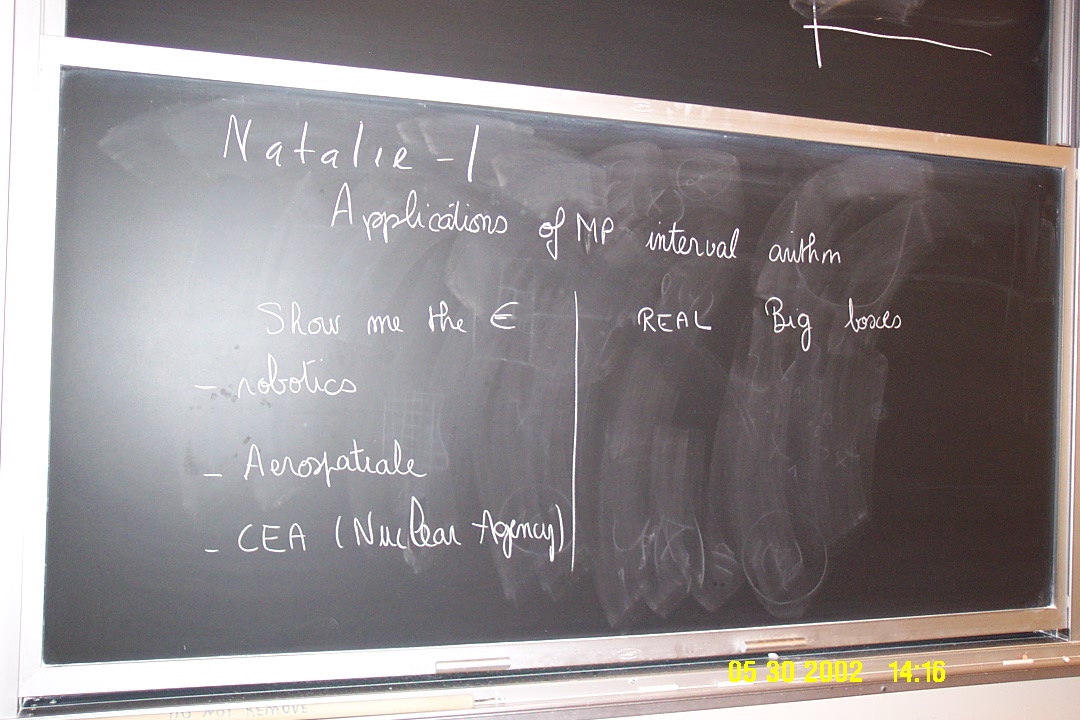 Natalie - 1
Applications of MP interval arithm
Show me the €
- robotics
- Aerospatiale
- CEA (Nuclear Agency)
REAL Big boxes
05 30 2002 14:16
DO NOT REMOVE